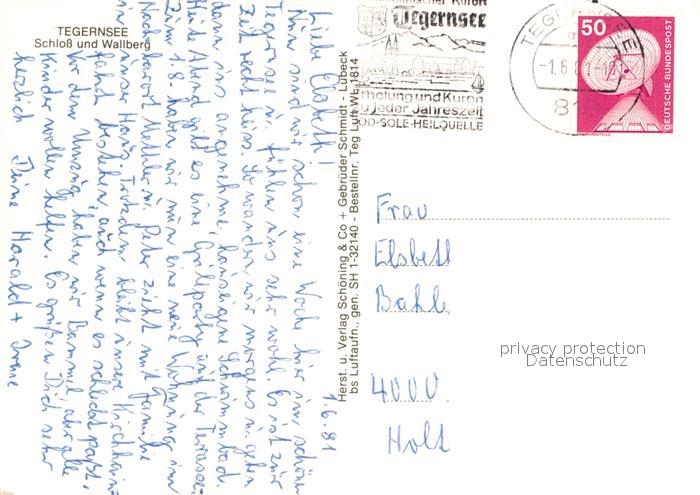 TEGERNSEE
Schloß und Wallberg
1.6.81
Liebe Elsbeth!
Nun sind wir schon eine Woche hier im schönen
Tegernsee u. fühlen uns sehr wohl. Es ist zur
Zeit recht heiss. So wandern wir morgens u. gehen
dann ins angenehme, hauseigene Schwimmbad.
Heute Abend gibt es eine Grillparty auf der Terrasse.
Zum 1.8. haben wir nun eine neue Wohnung im
Nachbarort u. Peter zieht mit Familie
in unser Haus. Trotzdem bleibt unsere
bestehen, auch wenn es schlecht passt.
Vor dem Umzug haben wir Bammel, aber alle
Kinder wollen helfen. Es grüßen Dich sehr
herzlich Deine Harald + Irene
Herst. u. Verlag Schöning & Co + Gebrüder Schmidt - Lübeck
bs Luftaufn., gen. SH 1-32140 - Bestellnr. Teg Luft WL 1814
Kurort
Tegernsee
Erholung und Kuren
zu jeder Jahreszeit
JOD-SOLE-HEILQUELLE
TEGERNSEE
50
DEUTSCHE BUNDESPOST
Frau
Elsbeth
Bahle
4000
Holt
privacy protection
Datenschutz